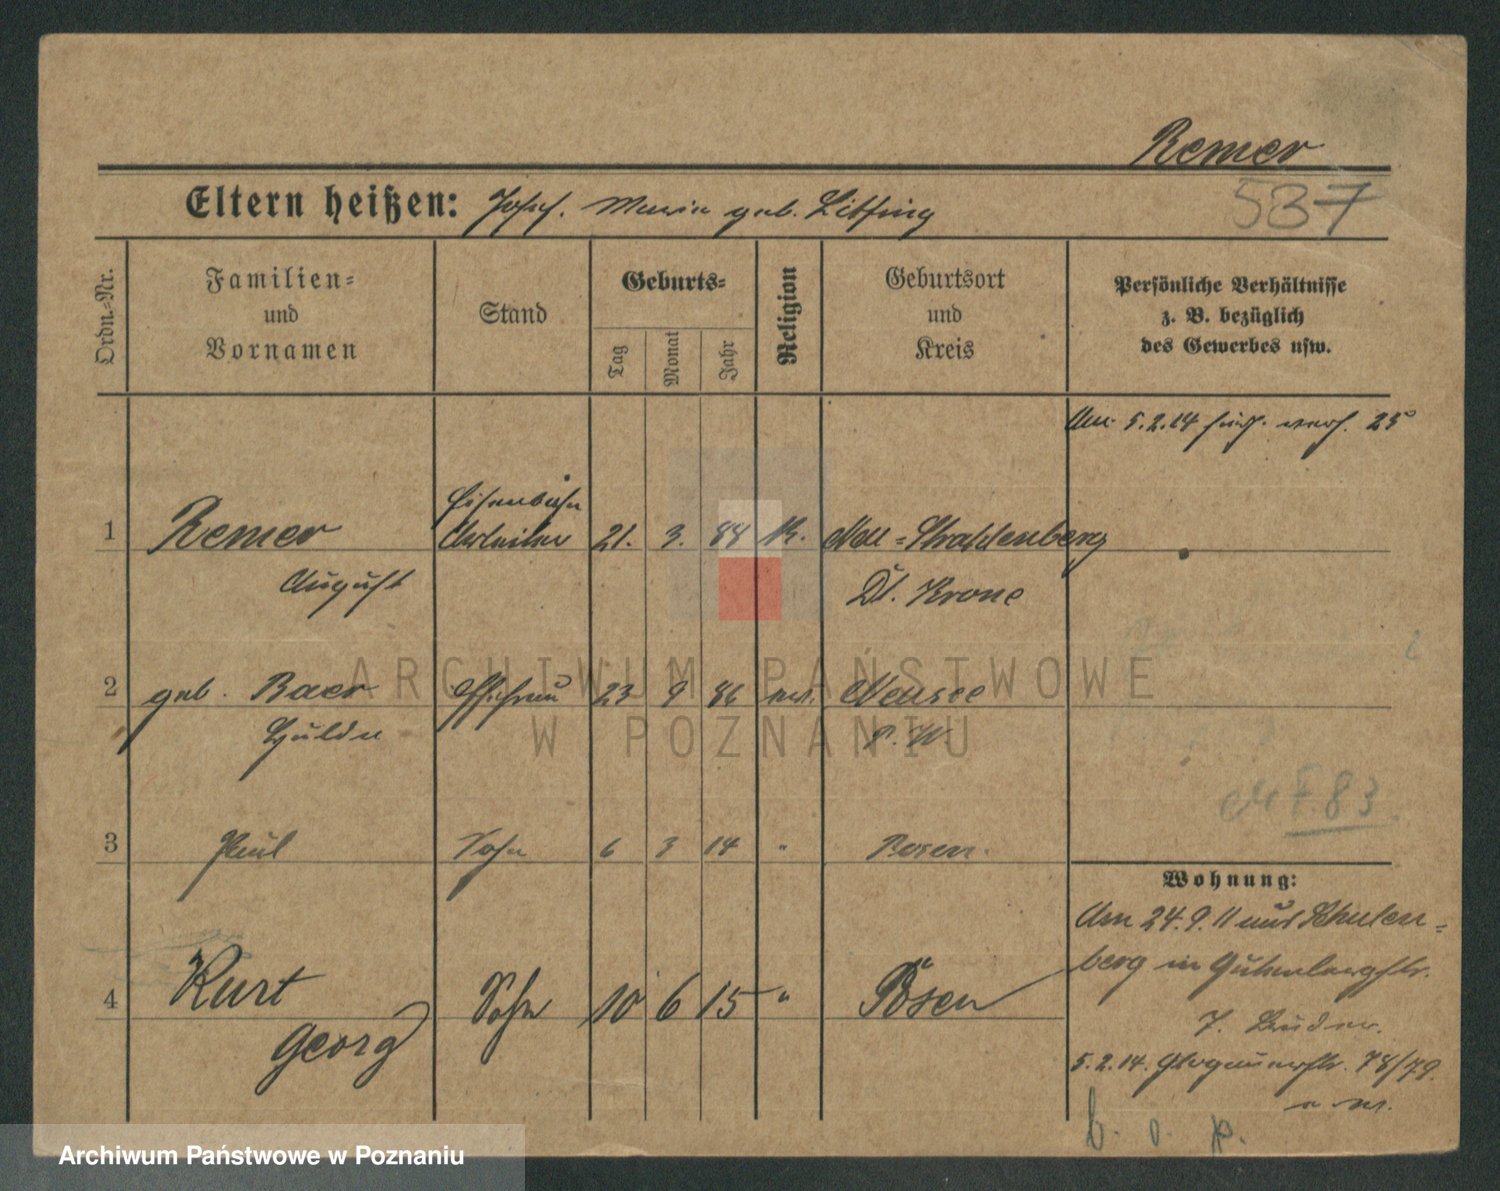 Remer
537
Eltern heißen: Josef. Maria geb. Litfing
Ordn.-Nr.
Familien-
und
Vornamen
Stand
Geburts-
Tag
Monat
Jahr
Religion
Geburtsort
und
Kreis
Persönliche Verhältnisse
z. B. bezüglich
des Gewerbes usw.
Am 5.2.14 verh. 25
Eisenbahn
1 Remer Arbeiter 21. 3. 88 K. Neu-Strahlenberg
August Dt. Krone
2 geb. Baer Ehefrau 23 9 86 Neusee
Hulda
3 Paul Sohn 6 3 14 " Posen.
F. 83
Wohnung:
Am 24.9.11 aus Schulen-
4 Kurt Sohn 10 6 15 " Posen
berg in Gutenbergstr.
Georg
7. Bruder.
5.2.14. Glogauerstr. 78/79.
b. o. p.
ARCHIWUM PAŃSTWOWE
W POZNANIU
Archiwum Państwowe w Poznaniu